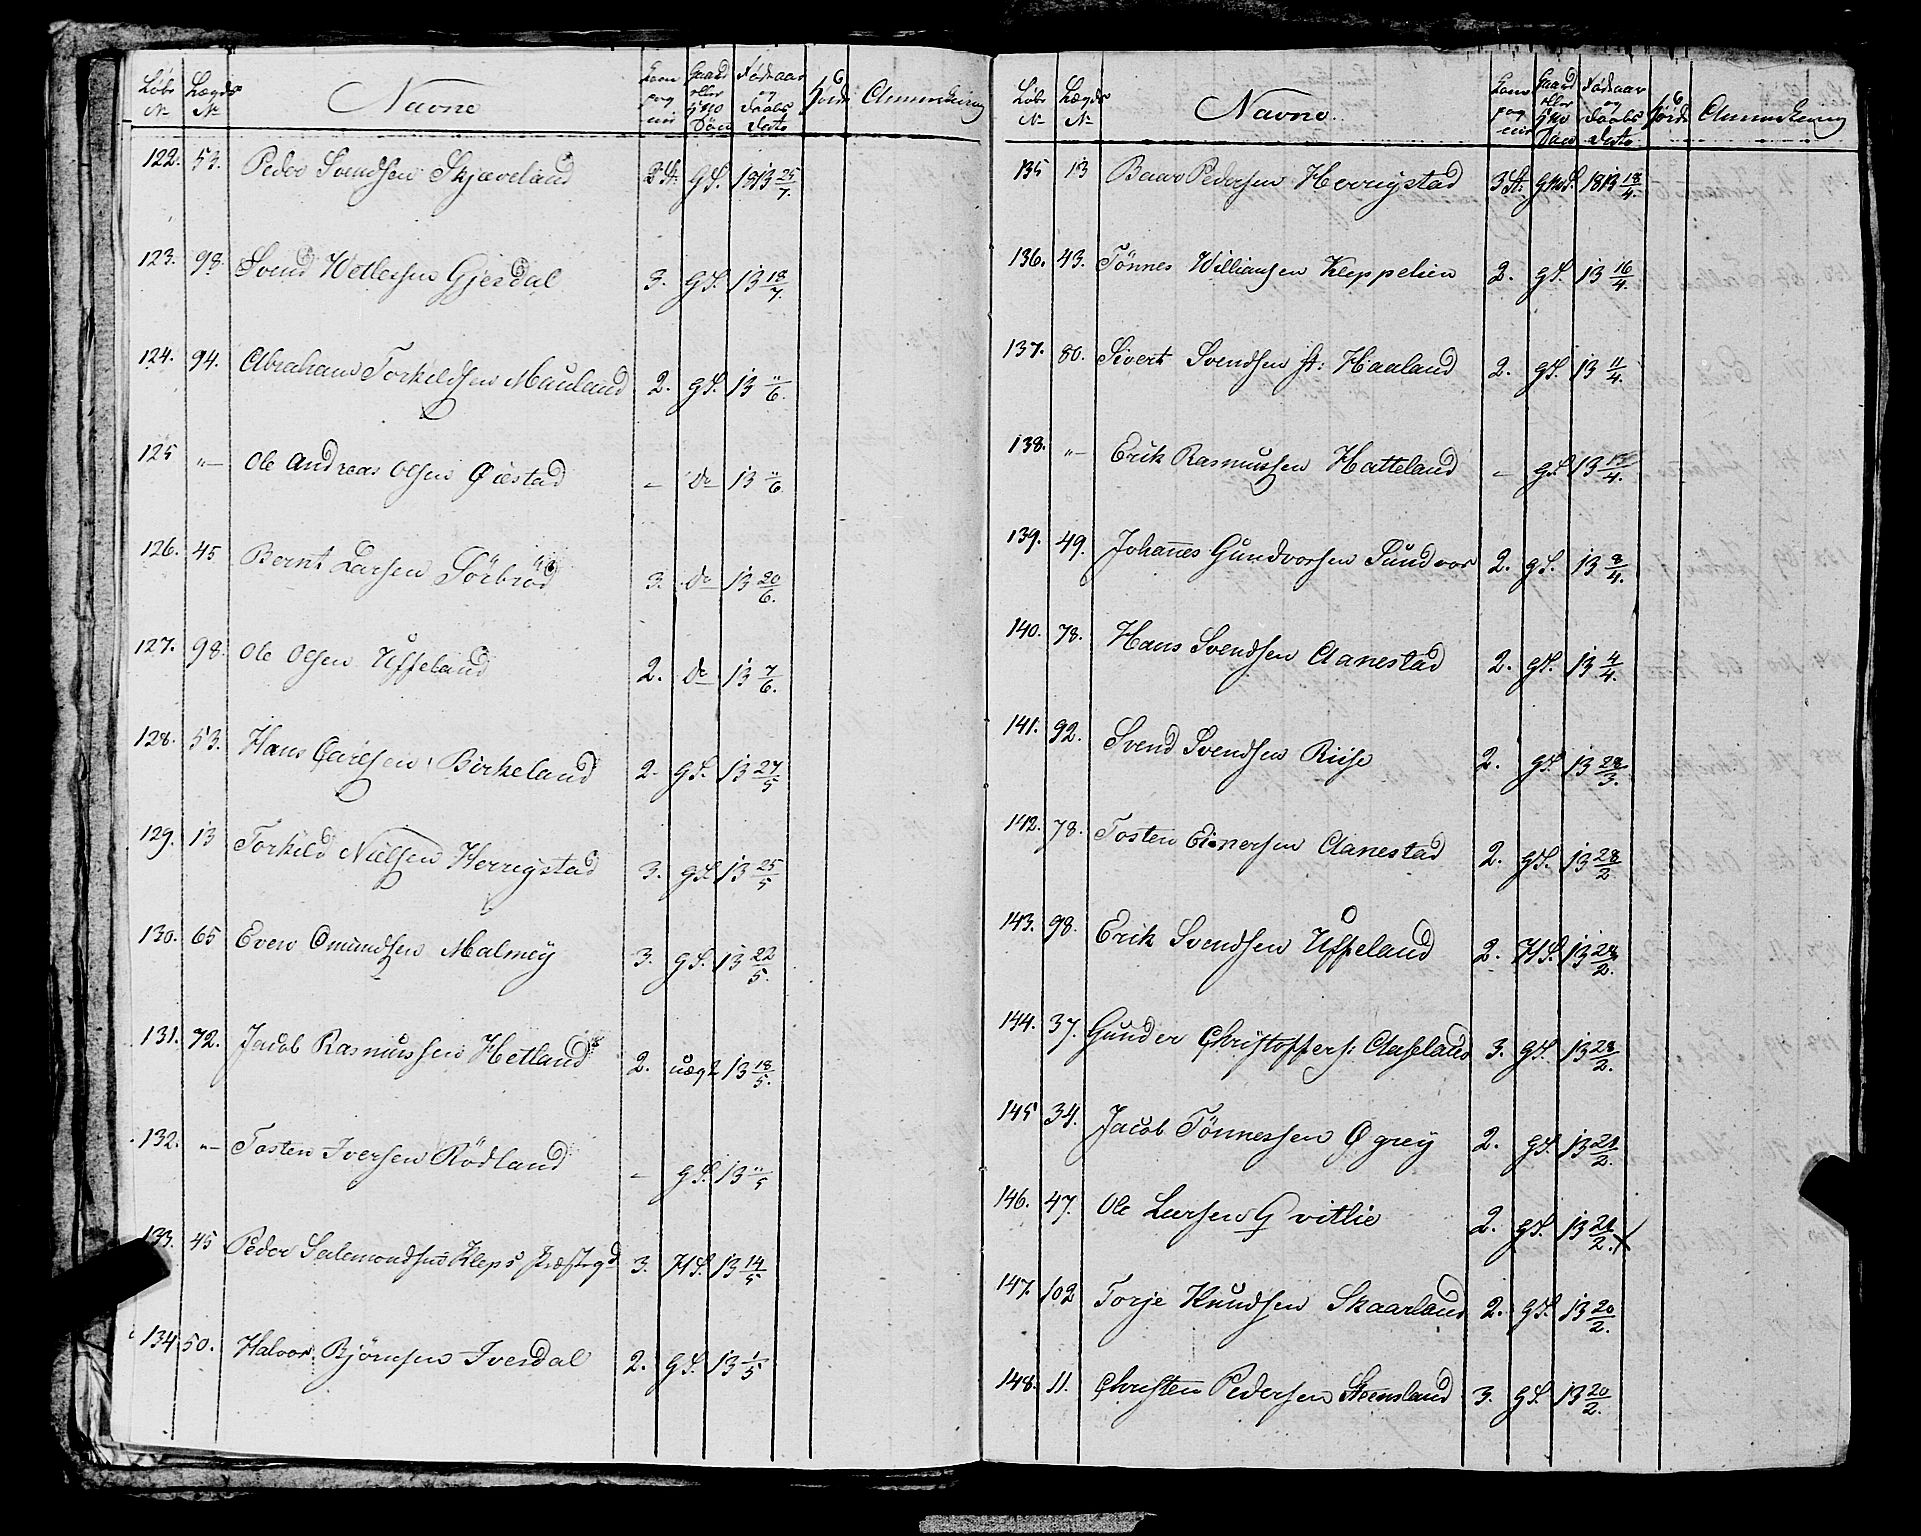 Løbe Lægds Navne Com Gaard Fødeaar Høide Anmærkning
N= N= pag eller og
nie Hmd Daabs
Søn Dato
122. 53. Peder Svendsen Skjæveland 3 St: GS. 1813 25/7.
123. 98. Svend Wetlessen Gjesdal 3. GS. 13 18/7.
124. 94. Abraham Torkildsen Mauland 2. GS. 13 "/6.
125 "— Ole Andreas Olsen Øiestad – do 13 "/6.
126. 45 Bernt Larsen Sörbröd 3. do 13 20/6.
127. 98. Ole Olsen Uffeland 2. do 13 7/6.
128. 53. Hans Carlsen Birkeland 2. GS. 13 27/5
129. 13 Torkild Nielsen Herrigstad 3. GS. 13 25/5
130. 65 Even Omundsen Malmey 3. GS. 13 22/5.
131. 72. Jacob Rasmussen Hetland 2. uægt 13 18/5.
132. "— Tosten Iversen Rödland – GS. 13 "/5
133. 45 Peder Salemondsen Kleps Præstegd 3. HS. 13 14/5
134 50. Halvor Bjørnsen Ivesdal 2. GS. 13 1/5.
Løbe Lægds Navne. Com Gaard Fødeaar Høide Anmærkning
N= N= pag eller og
nie Hmd Daabs
Søn Dato
135 13 Baar Pedersen Herrigstad 3 St: GmS. 1813 18/4.
136. 43. Tönnes Williamsen Kleppelien 2. GS. 13 16/4.
137. 80. Sivert Svendsen st: Haaland 2. GS. 13 11/4.
138. "— Erik Rasmussen Hatteland – GS. 13 /4.
139. 49. Johannes Gundvorsen Sundvor 2. GS. 13 8/4.
140. 78. Hans Svendsen Aanestad 2. GS. 13 4/4.
141. 92. Svend Svendsen Riise 2. GS. 13 28/3.
142. 78. Tosten Einersen Aanestad 2. GS. 13 28/2
143. 98. Erik Svendsen Uffeland 2. HS. 13 28/2.
144. 37. Gunder Christoffers: Aaseland 3. GS. 13 28/2.
145 34. Jacob Tönnessen Øgrey 2. GS. 13 21/2.
146. 47. Ole Larsen Qvitlie 2. GS. 13 21/2. X
147. 102 Torje Knudsen Skaarland 2. GS. 13 20/2.
148. 11. Christen Pedersen Steensland 3. GS. 13 20/2.